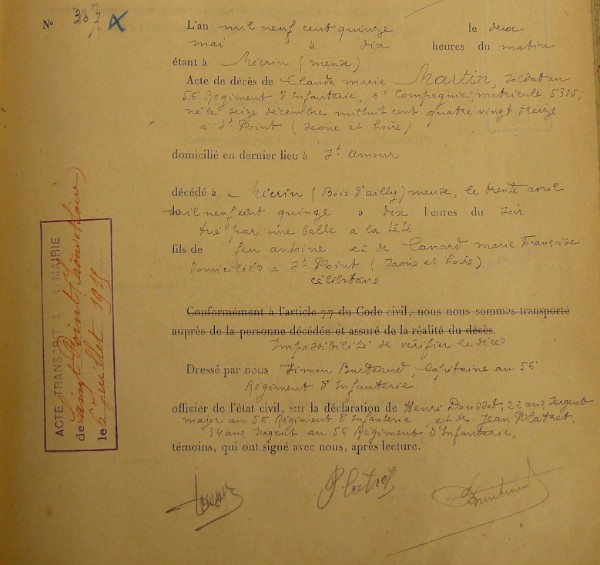 N° 307 X
L'an mil neuf cent quinze le deux
mai à dix heures du matin
étant à Mécrin (meuse)
Acte de décès de Claude marie Martin, soldat au
56 Régiment d'Infanterie, 6e Compagnie, matricule 5315,
né le seize décembre mil huit cent quatre vingt treize
à St Point (Saône et Loire)
domicilié en dernier lieu à St amour
décédé à Mécrin (Bois d'ailly) meuse, le trente avril
mil neuf cent quinze à dix heures du soir
tué par une balle à la tête
fils de feu antoine et de marie Françoise
domiciliés à St Point (Saône et Loire)
célibataire
Conformément à l'article 77 du Code civil, nous nous sommes transporté
auprès de la personne décédée et assuré de la réalité du décès.
Impossibilité de vérifier le décès
Dressé par nous Simon Capitaine au 56
Régiment d'Infanterie
officier de l'état civil, sur la déclaration de Henri 22 ans, sergent
major au 56 Régiment d'Infanterie et de Jean Platret,
34 ans sergent au 56 Régiment d'Infanterie,
témoins, qui ont signé avec nous, après lecture.
Platret
ACTE TRANSPORT MAIRIE
de Saint Point, Saône et Loire
le 6 Juillet 1915